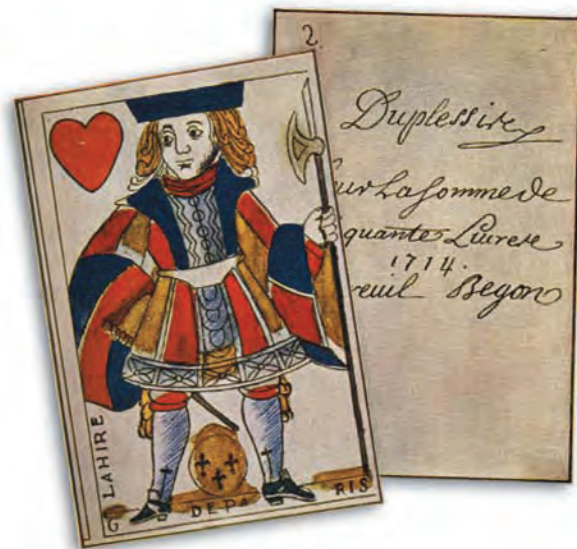 LAHIRE
G DE PA RIS
2.
Duplessis
Pour La Somme de
quante Livres
1714.
reuil Begon